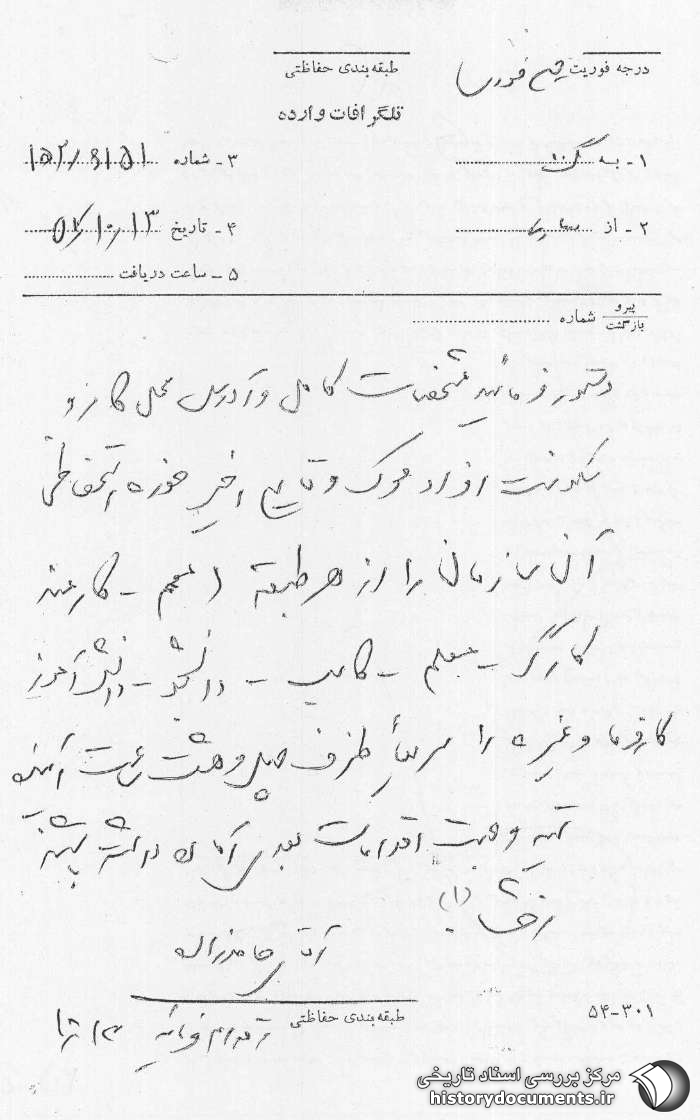 درجه فوریت خیلی فوری
طبقه‌بندی حفاظتی
تلگرافات وارده
۱ - به
۳ - شماره ۱۵۲/۸۱۵۱
۲ - از
۴ - تاریخ
۵ - ساعت دریافت
پیرو
بازگشت
شماره
دستور فرمائید مشخصات کامل و آدرس محل کار و
سکونت افراد محرک وقایع اخیر حوزه استحفاظی
آن سازمان را از هر طبقه اعم - کارمند
کارگر - معلم - کاسب - دانشجو - دانش‌آموز
کارفرما و غیره را سریعاً ظرف چهل و هشت ساعت آینده
تهیه و جهت اقدامات بعدی آماده داشته باشند
آقای
طبقه‌بندی حفاظتی
۵۴-۳۰۱
اقدام فرمائید
مرکز بررسی اسناد تاریخی
historydocuments.ir